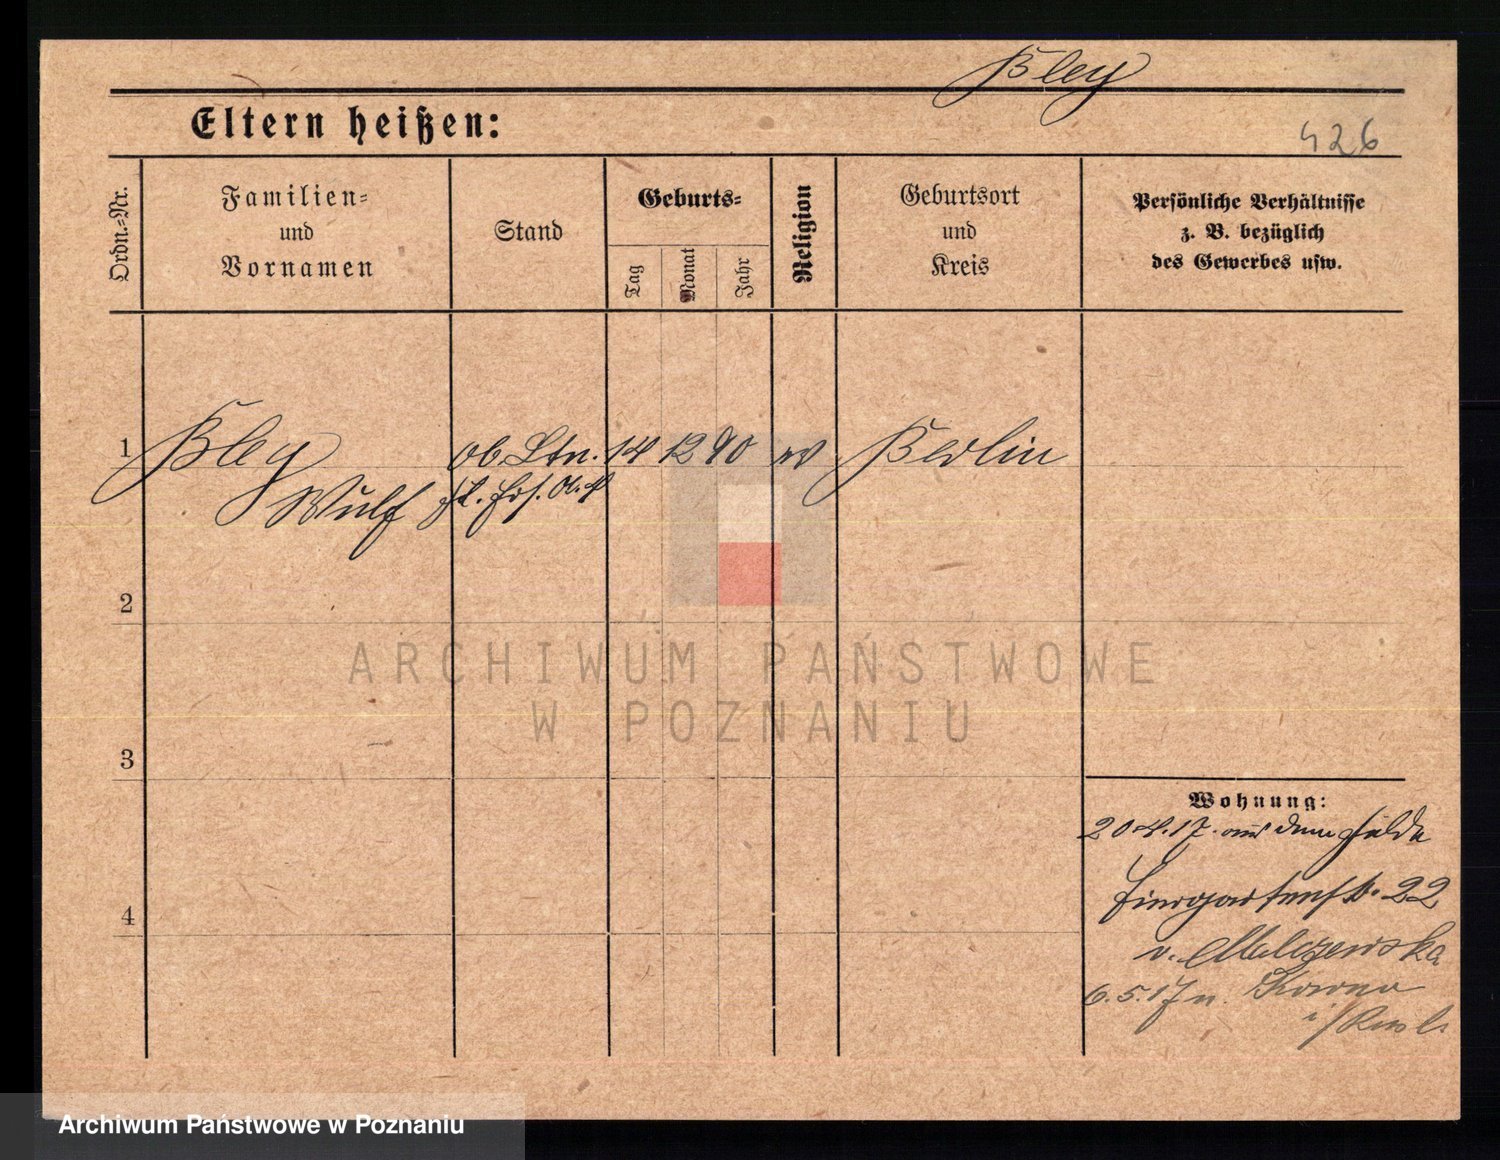 Bley
Eltern heißen:
426
Ordn.=Nr.
Familien=
und
Vornamen
Stand
Geburts=
Tag
Monat
Jahr
Religion
Geburtsort
und
Kreis
Persönliche Verhältnisse
z. B. bezüglich
des Gewerbes usw.
1
Bley
Wulf
Ob. Ltn.
14 12 90
Berlin
2
3
4
Wohnung:
20.4.17. aus dem Felde
Tiergartenstr. 22
v. Malczewska
6.5.17 n. Kowno
i/Russl.
ARCHIWUM PAŃSTWOWE
W POZNANIU
Archiwum Państwowe w Poznaniu